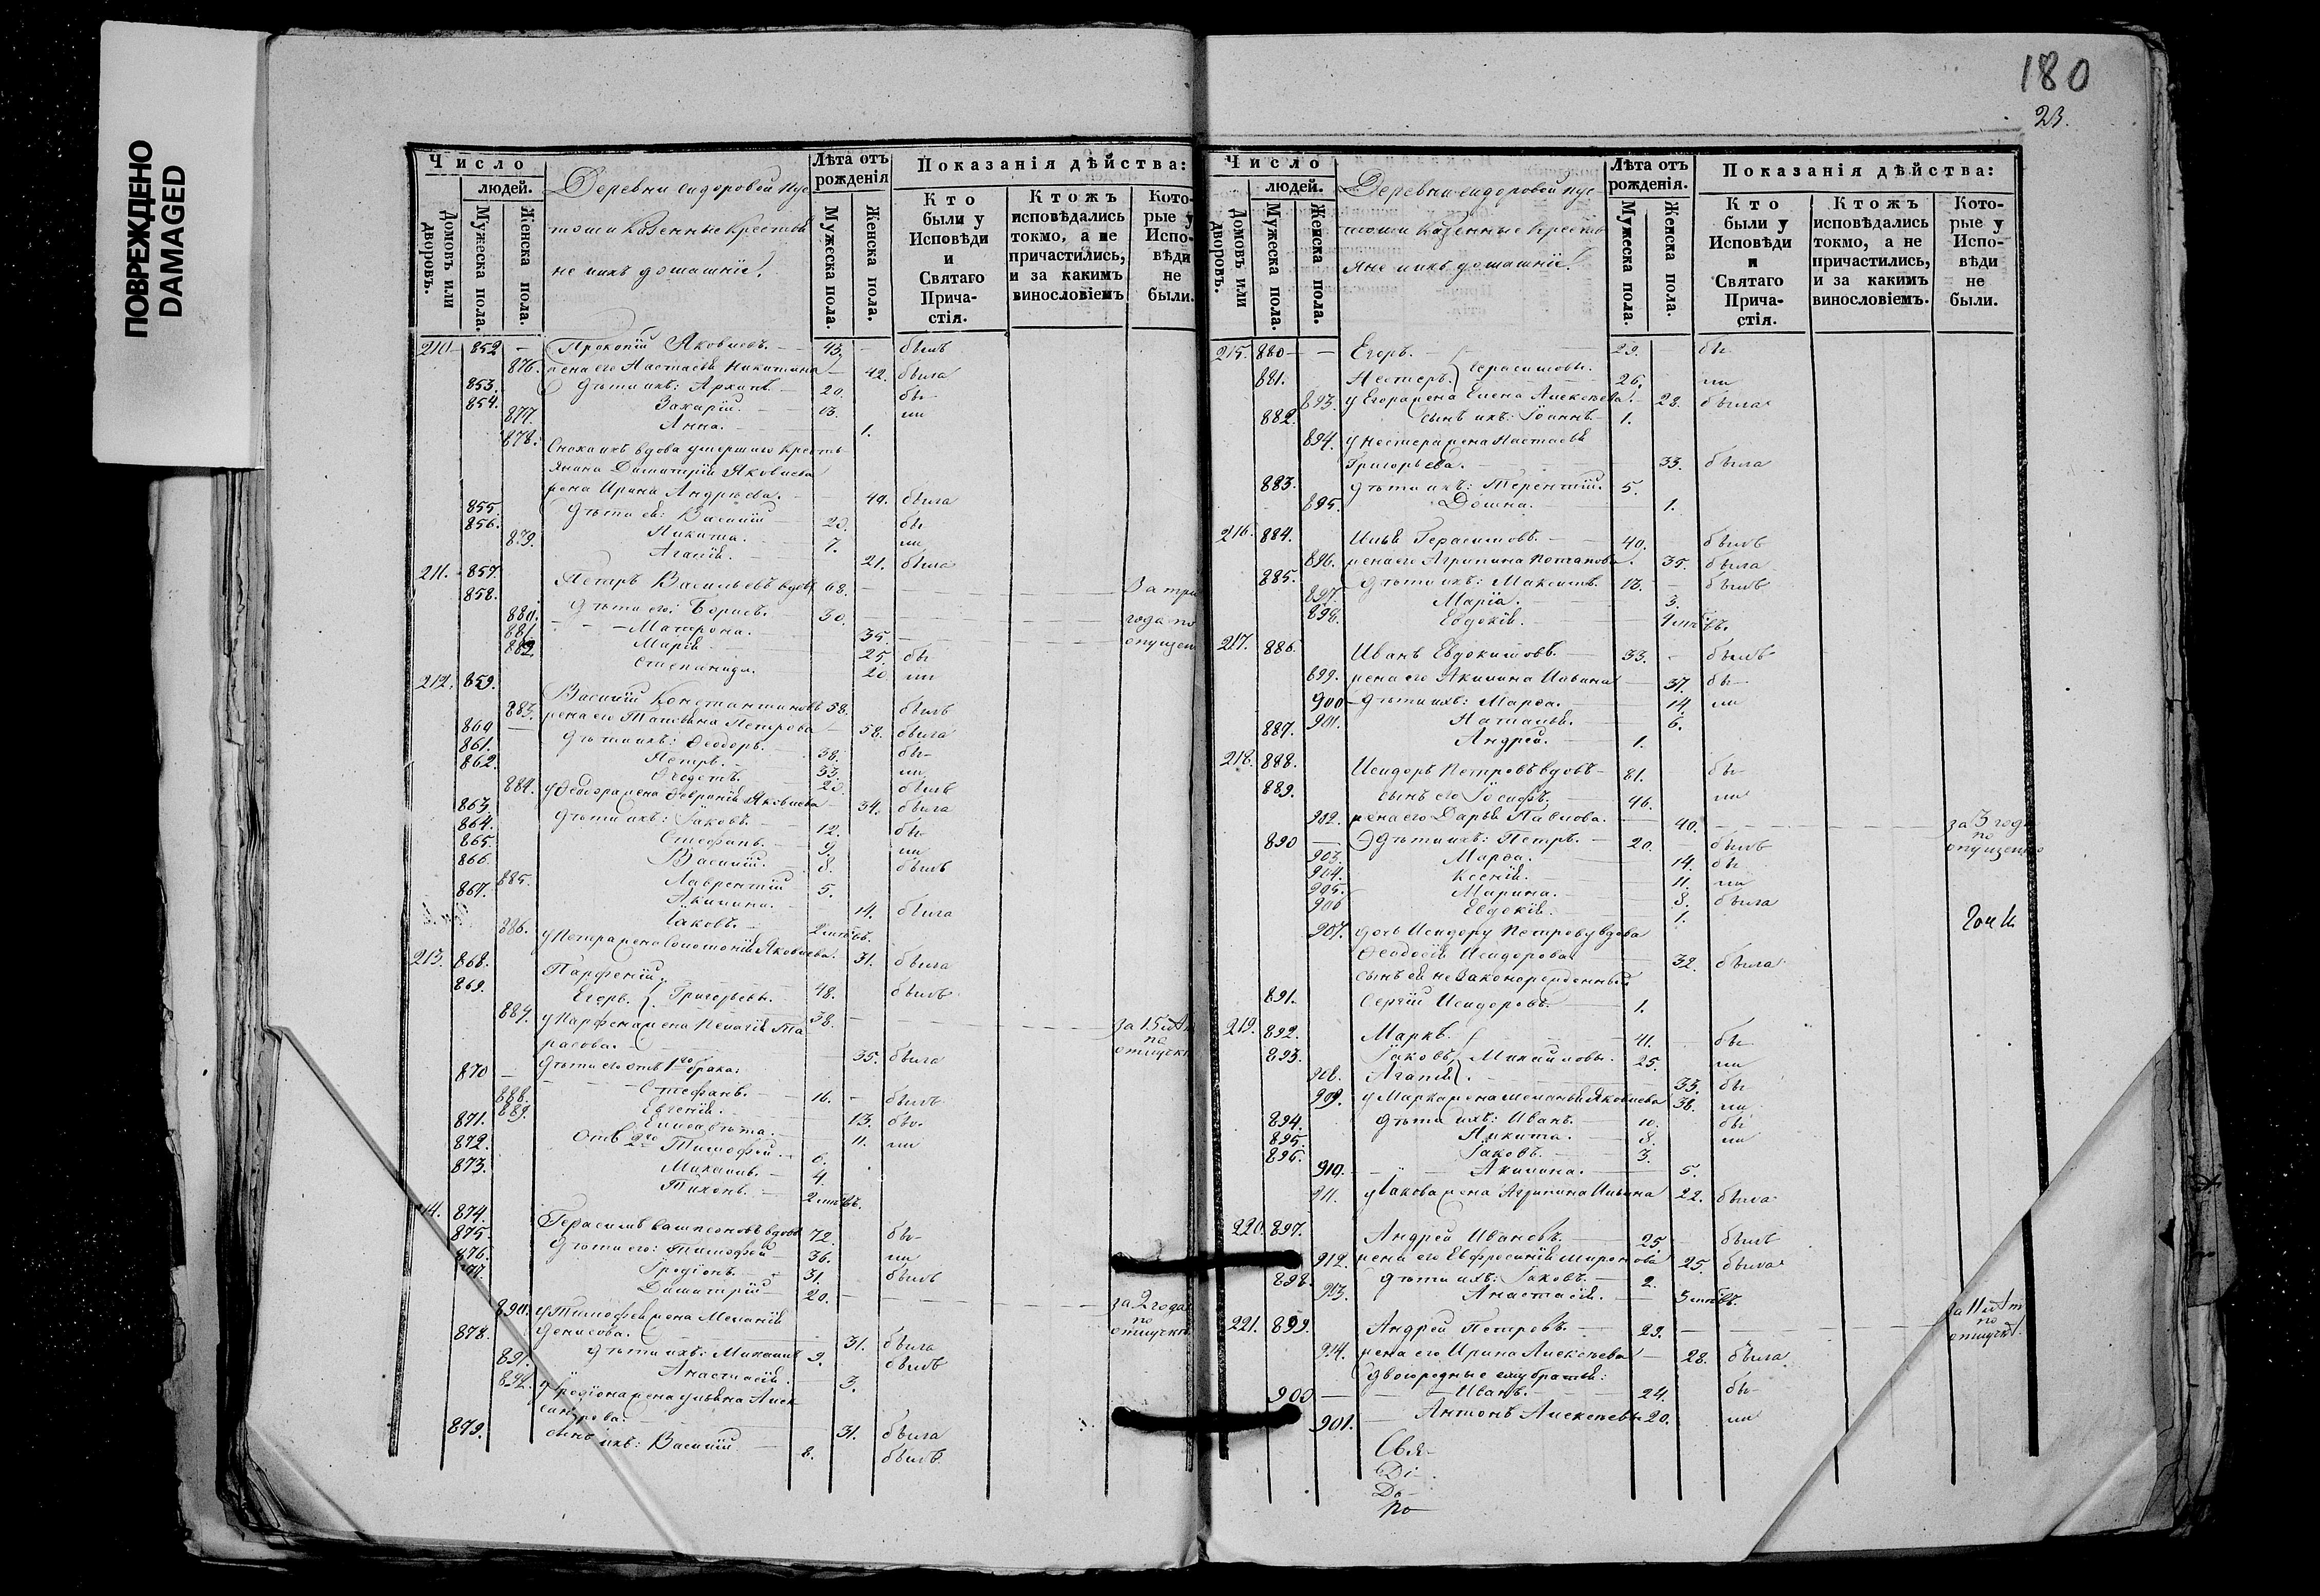 ПОВРЕЖДЕНО
DAMAGED
180
23.
Число людей. Домовъ или дворовъ. Мужеска пола. Женска пола.
Деревни Сидоровой Пус-
тоши Казенные Крестья
не и ихъ домашніе.
Лѣта отъ рожденія Мужеска пола. Женска пола.
Показанія дѣйства:
Кто были у Исповѣди и Святаго Прича-стія.
Ктожъ исповѣдались токмо, а не причастились, и за какимъ винословіемъ
Кото-рые у Испо-вѣди не были.
210 852 — Прокопій Яковлевъ. 43. — былъ
876. жена его Настасья Никитина 42. была
853. дѣти ихъ: Архипъ. 20. бы-
854. Захарій. 13. ли
877. Анна. 1.
878. Сноха ихъ вдова умершаго Кресть
янина Димитрія Яковлева
жена Ирина Андреева. 49. была
855. дѣти ея: Василій 20. бы
856. Никита. 7. ли
879. Агапія. 21. была
211. 857. Петръ Васильевъ вдовъ 68. За три
858. дѣти его: Борисъ. 30. года по
880. Матрона. 35. опущен
881. Марія. 25. бы
882. Степанида. 20 ли
212. 859. Василій Константиновъ 58. былъ
883. жена его Татьяна Петрова 58. была
860 дѣти ихъ: Ѳеодоръ. 38. бы-
861. Петръ. 33. ли
862. 20. былъ
884. у Ѳеодора жена Февронія Яковлева 34. была
863. дѣти ихъ: Іаковъ. 12. бы
864. Стефанъ. 9. ли
865. Василій. 8. былъ
866. Лаврентій 5.
885. Акилина. 14. была
867. Іаковъ. 2 мѣ
886. у Петра жена Яковлева. 31. была
213. 868. Парфеній. 48. былъ
869. Егоръ. Григорьевы. 38. за 15 лѣт по отлучкѣ
887. у Парфена жена Пелагія Та
расова. 35. была
дѣти его отъ 1го брака:
870 — Стефанъ. 16. — былъ
888. Евгенія. 13. бы.
889. Елисавета. 11. ли
871. Отъ 2го Тимофей. 6.
872. Михаилъ. 4.
873. Тихонъ. 2 мѣ
874. Герасимъ Сампсоновъ вдовъ 72. бы-
875. дѣти его: Тимофей 36. ли
876. Іродіонъ. 31. былъ
877. Димитрій 20. за 2 года по отлучкѣ
890. у Тимофея жена Меланія
Денисова. 31. была
878. дѣти ихъ: Михаилъ 9. былъ
891. Анастасія. 3.
892. у Іродіона жена Ульяна Алек
сандрова. 31. была
879. сынъ ихъ: Василій 8. былъ
Число людей. Домовъ или дворовъ. Мужеска пола. Женска пола.
Деревни Сидоровой Пус-
тоши Казенные Кресть
яне и ихъ домашніе.
Лѣта отъ рожденія. Мужеска пола. Женска пола.
Показанія дѣйства:
Кто были у Исповѣди и Святаго Прича-стія.
Ктожъ исповѣдались токмо, а не причастились, и за какимъ винословіемъ.
Кото-рые у Испо-вѣди не были.
215. 880 — — Егоръ. 29. бы-
881. Нестеръ. Герасимовы. 26. ли
893. у Егора жена Елена Алексѣева. 28. была
882. сынъ ихъ: Іоаннъ. 1.
894. у Нестера жена Настасья
Григорьева. 33. была
883. дѣти ихъ: Терентій. 5.
895. Домна. 1.
216. 884. Илья Герасимовъ. 40. былъ
896. жена его Агрипина Потапова. 35. была
885. дѣти ихъ: Максимъ. 13. — былъ
897. Марія. 3.
898. Евдокія.
217. 886. Иванъ Евдокимовъ. 33. — былъ
899. жена его Акилина Ильина 37. бы-
900 дѣти ихъ: Марѳа. 14. ли
901. Наталья. 6.
887. Андрей. 1.
218. 888. Исидоръ Петровъ вдовъ 81. бы-
889. сынъ его Іосифъ. 46. ли
902. жена его Дарья Павлова. 40. за 3 год по опущен
890 — дѣти ихъ: Петръ. 20. былъ
903. Марѳа. 14. бы
904. Ксенія. 11. ли
905. Марина. 8. была
906 Евдокія. 1.
907. дочь Исидору Петрову вдова
Ѳеодосія Исидорова 32. была
сынъ ея незаконорожденный
891. Сергій Исидоровъ 1.
219. 892. Маркъ. 41. бы-
893. Іаковъ Михайловы. 25. ли
908. Агапія. 33. бы
909. у Марка жена Меланья Яковлева 38. ли
894. дѣти ихъ: Иванъ. 10. бы
895. Никита. 8. ли
896. Іаковъ. 3.
910. Акилина. 5.
911. у Іакова жена Агрипина Ильина 22. была
220. 897. Андрей Ивановъ. 25. былъ
912. жена его Евфросинія Миронова 25. была
898. дѣти ихъ: Іаковъ. 2.
913. Анастасія.
221. 899. Андрей Петровъ. 29. за 11 лѣт по отлучкѣ.
914. жена его Ирина Алексѣева 28. была.
Двоюродные ему братья:
900 — Иванъ. 24. бы-
901. Антонъ Алексѣевы 20. ли
Свя-
Ді-
До-
По-